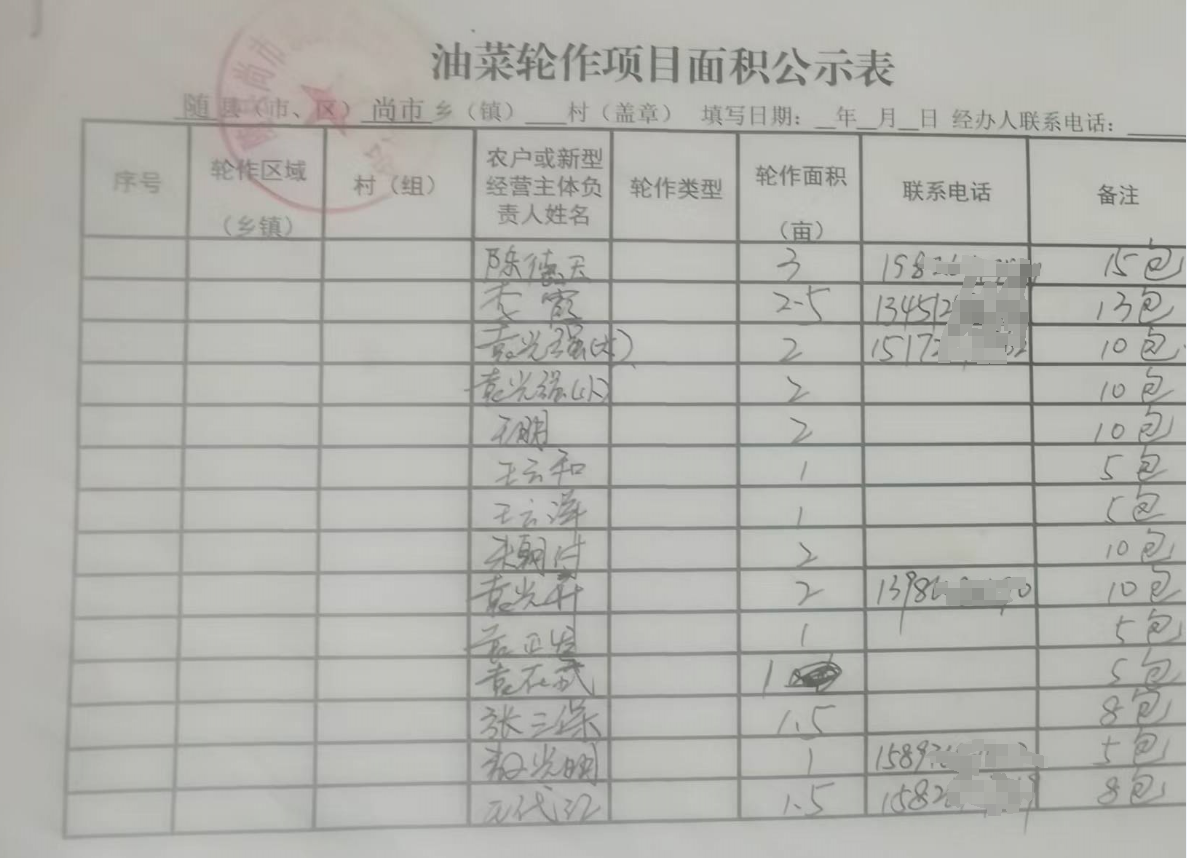 油菜轮作项目面积公示表
随县（市、区） 尚市 乡（镇） 村（盖章） 填写日期： 年 月 日 经办人联系电话：
序号 轮作区域（乡镇） 村（组） 农户或新型经营主体负责人姓名 轮作类型 轮作面积（亩） 联系电话 备注
陈德玉 3 15包
李霞 2-5 13451 13包
袁光强(大) 2 1517 10包
袁光强(小) 2 10包
王明 2 10包
王云和 1 5包
王云洋 1 5包
朱朝付 2 10包
袁光 2 1398 10包
袁正 1 5包
袁在武 1 5包
张三保 1.5 8包
光明 1 1589 5包
代 1.5 1582 8包